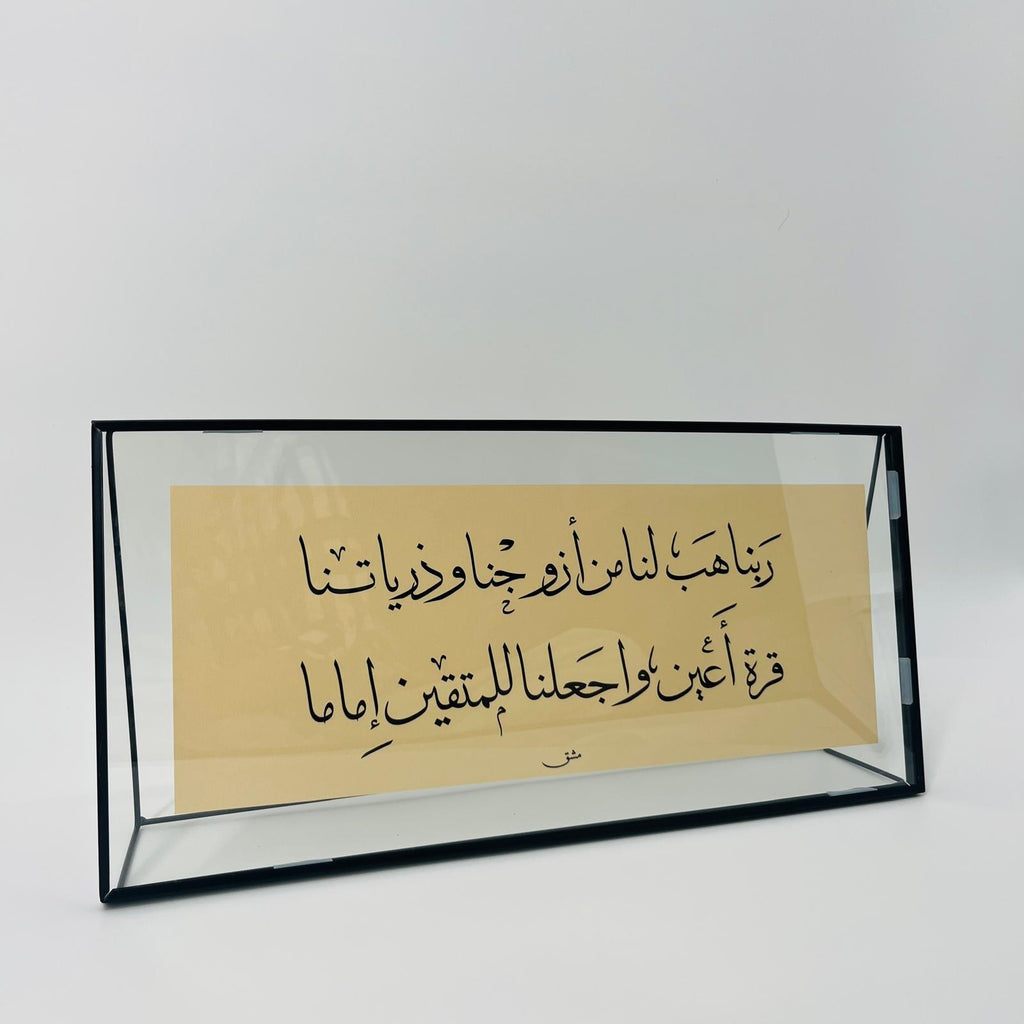 رَبنا هَب لنا من أزوجنا وذرياتنا
قرة أَعين واجَعلنا للمتقين إِماما
مشق